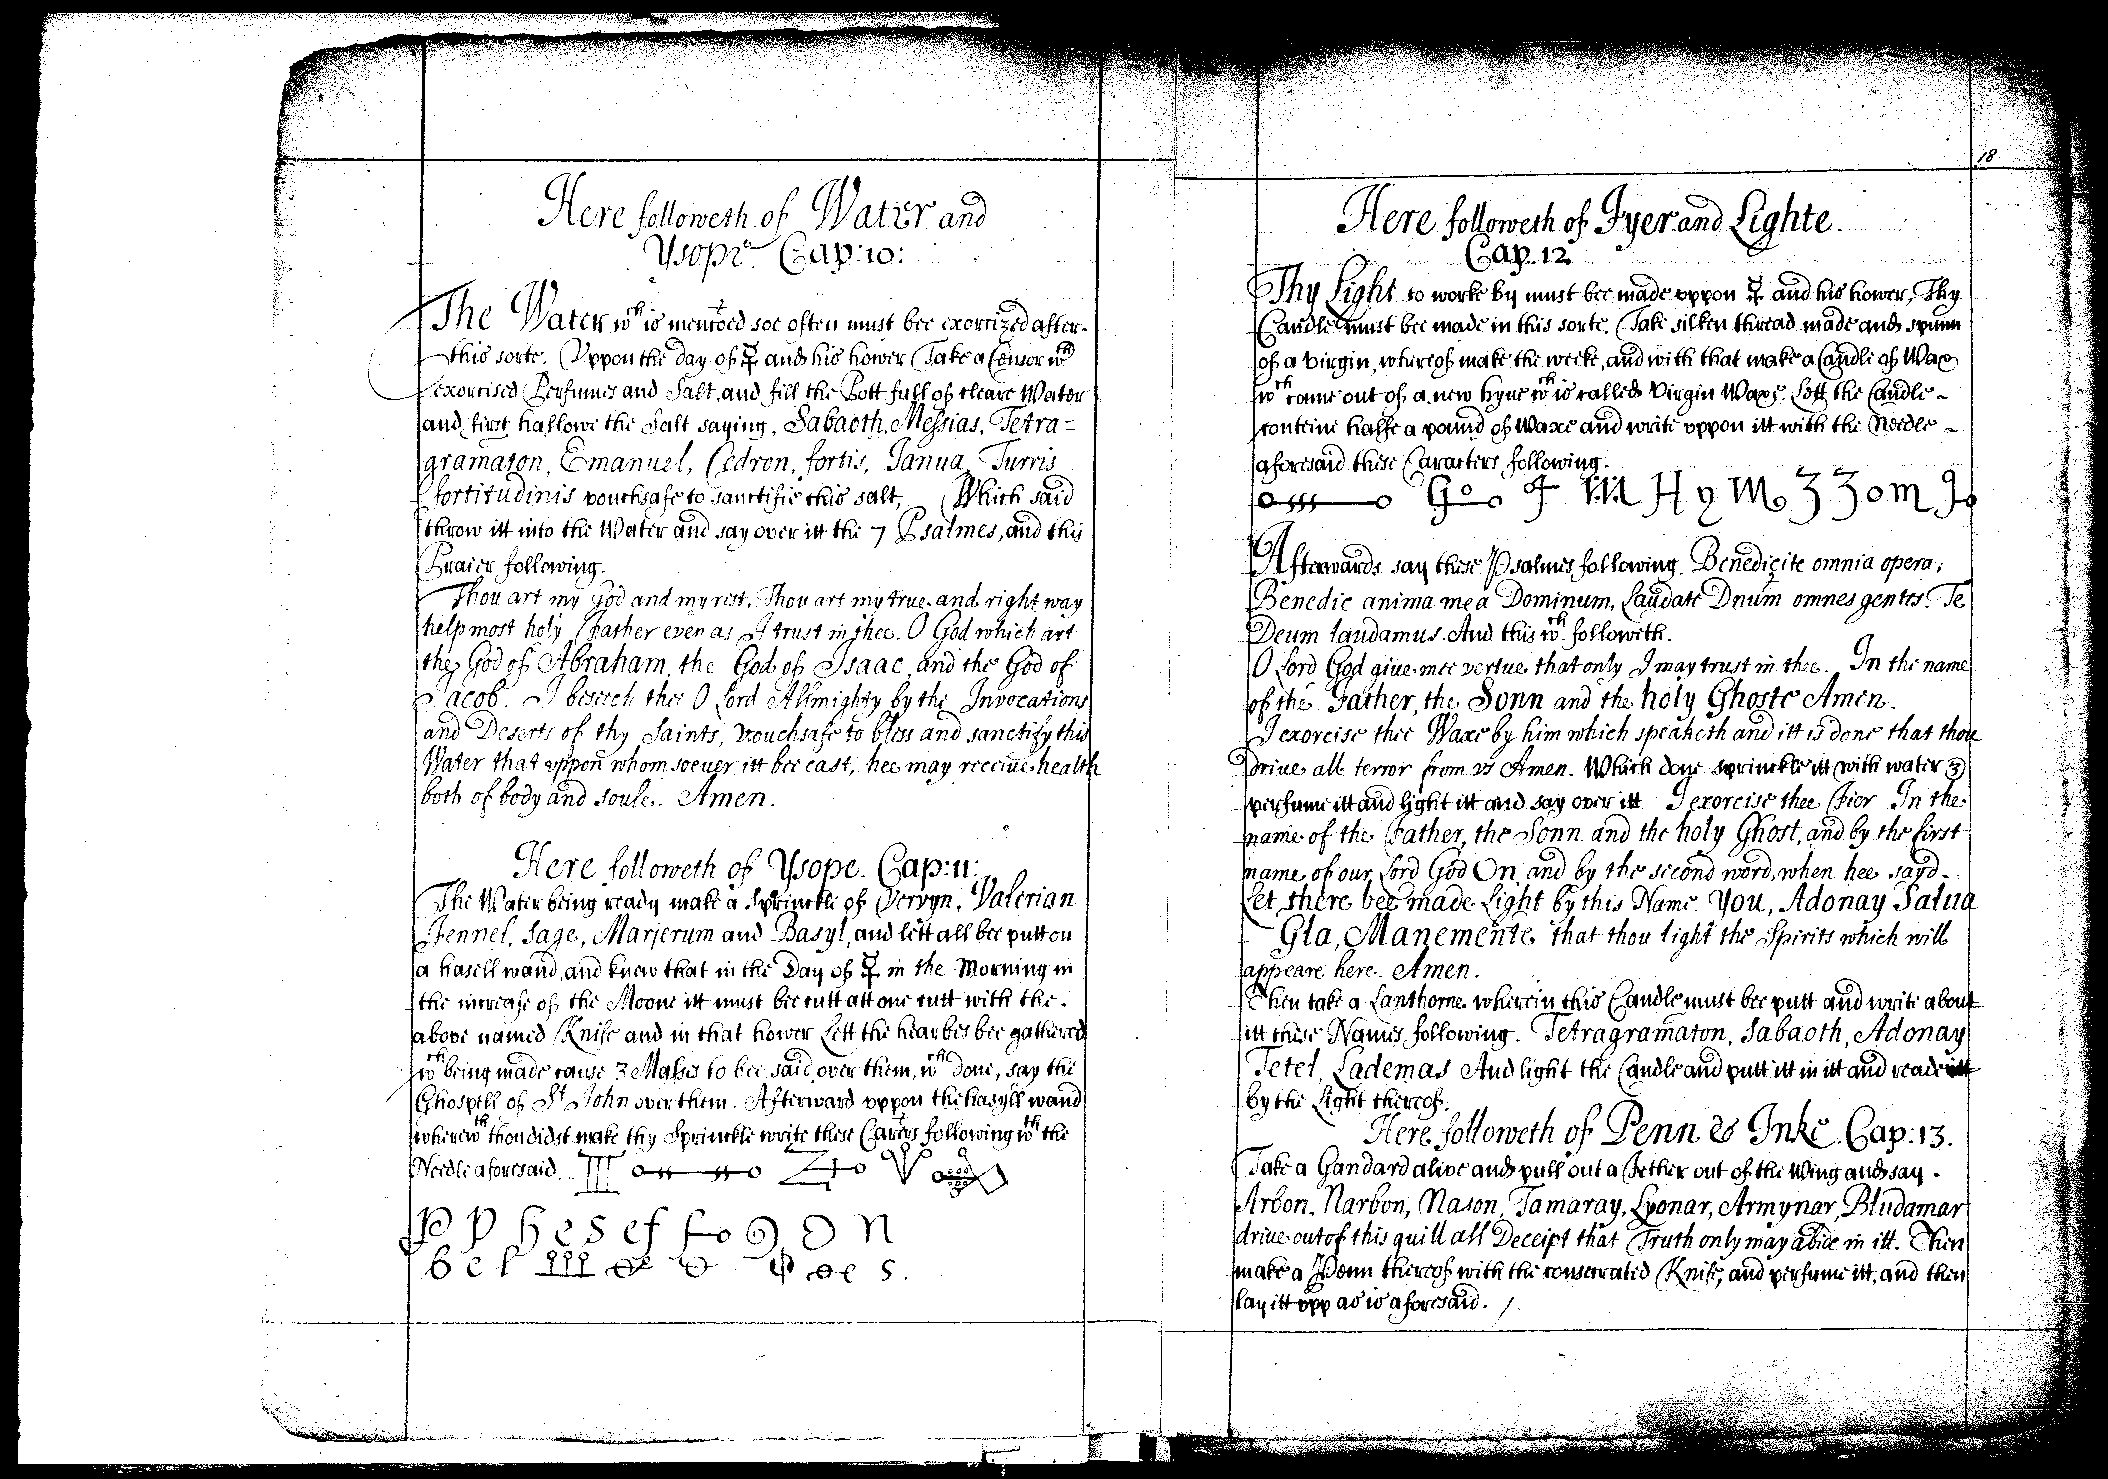 Here followeth of Water and
Ysope. Cap: 10:
The Water wch is mentioned soe often must bee exorcized after
this sorte. Uppon the day of ☿ and his hower Take a Censor wth
exorcised Perfumes and Salt, and fill the Pott full of cleare Water
and first hallowe the Salt saying, Sabaoth, Messias, Tetra=
gramaton, Emanuel, Cedron, fortis, Janua, Turris
fortitudinis vouchsafe to sanctifie this salt, Which said
throw itt into the Water and say over itt the 7 Psalmes, and this
Praier following.
Thou art my God and my rest, Thou art my true and right way
help most holy Father even as I trust in thee. O God which art
the God of Abraham, the God of Isaac, and the God of
Jacob. I beseech thee O Lord Allmighty by the Invocations
and Deserts of thy Saints, vouchsafe to bless and sanctify this
Water that uppon whomsoever itt bee cast, hee may receive health
both of body and soule. Amen.
Here followeth of Ysope. Cap: 11:
The Water being ready make a Sprinkle of Vervyn, Valerian
Fennel, Sage, Marjerum and Basyl, and lett all bee putt on
a hasell wand, and know that in the Day of ☿ in the Morning in
the increase of the Moone itt must bee cutt att one cutt with the
above named Knife and in that hower Lett the hearbes bee gathered
wch being made cause 3 Masses to bee said over them, wch done, say the
Ghospell of St John over them. Afterward uppon the hasyll wand
wherewth thou didst make thy Sprinckle write these Carcrs following wth the
Needle aforesaid.
P P h e s e f f o 9 D n
b e l

18
Here followeth of Fyer and Lighte.
Cap. 12
Thy Light to worke by must bee made uppon ☿ and his hower, Thy
Candle must bee made in this sorte. Take silken thread made and spunn
of a virgin, whereof make the weeke, and with that make a Candle of Wax
wch came out of a new hyve wch is called Virgin Waxe. Lett the Candle
conteine halfe a pound of Waxe and write uppon itt with the Needle
aforesaid these Caracters following.
H y M 3 3 o m
Afterwards say these Psalmes following. Benedicite omnia opera,
Benedic anima mea Dominum, Laudate Dnum omnes gentes. Te
Deum laudamus. And this wch followeth.
O Lord God give mee vertue that only I may trust in thee. In the name
of the Father, the Sonn and the holy Ghoste Amen.
I exorcise thee Waxe by him which speaketh and itt is done that thou
drive all terror from us Amen. Which done sprinckle itt with water &
perfume itt and light itt and say over itt I exorcise thee Fier In the
name of the Father, the Sonn and the holy Ghost, and by the first
name of our Lord God On, and by the second word, when hee sayd
Let there bee made Light by this Name. You, Adonay Salua
Gla, Manemente that thou light the Spirits which will
appeare here. Amen.
Then take a Lanthorne wherein this Candle must bee putt and write about
itt these Names following. Tetragramaton, Sabaoth, Adonay
Tetel, Lademas And light the Candle and putt itt in itt and reade itt
by the Light thereof.
Here followeth of Penn & Inke. Cap: 13.
Take a Gandard alive and pull out a Fether out of the Wing and say
Arbon, Narbon, Nason, Tamaray, Lyonar, Armynar, Bludamar
drive out of this quill all Deceipt that Truth only may abide in itt. Then
make a Penn thereof with the consecrated Knife, and perfume itt, and then
lay itt upp as is aforesaid.